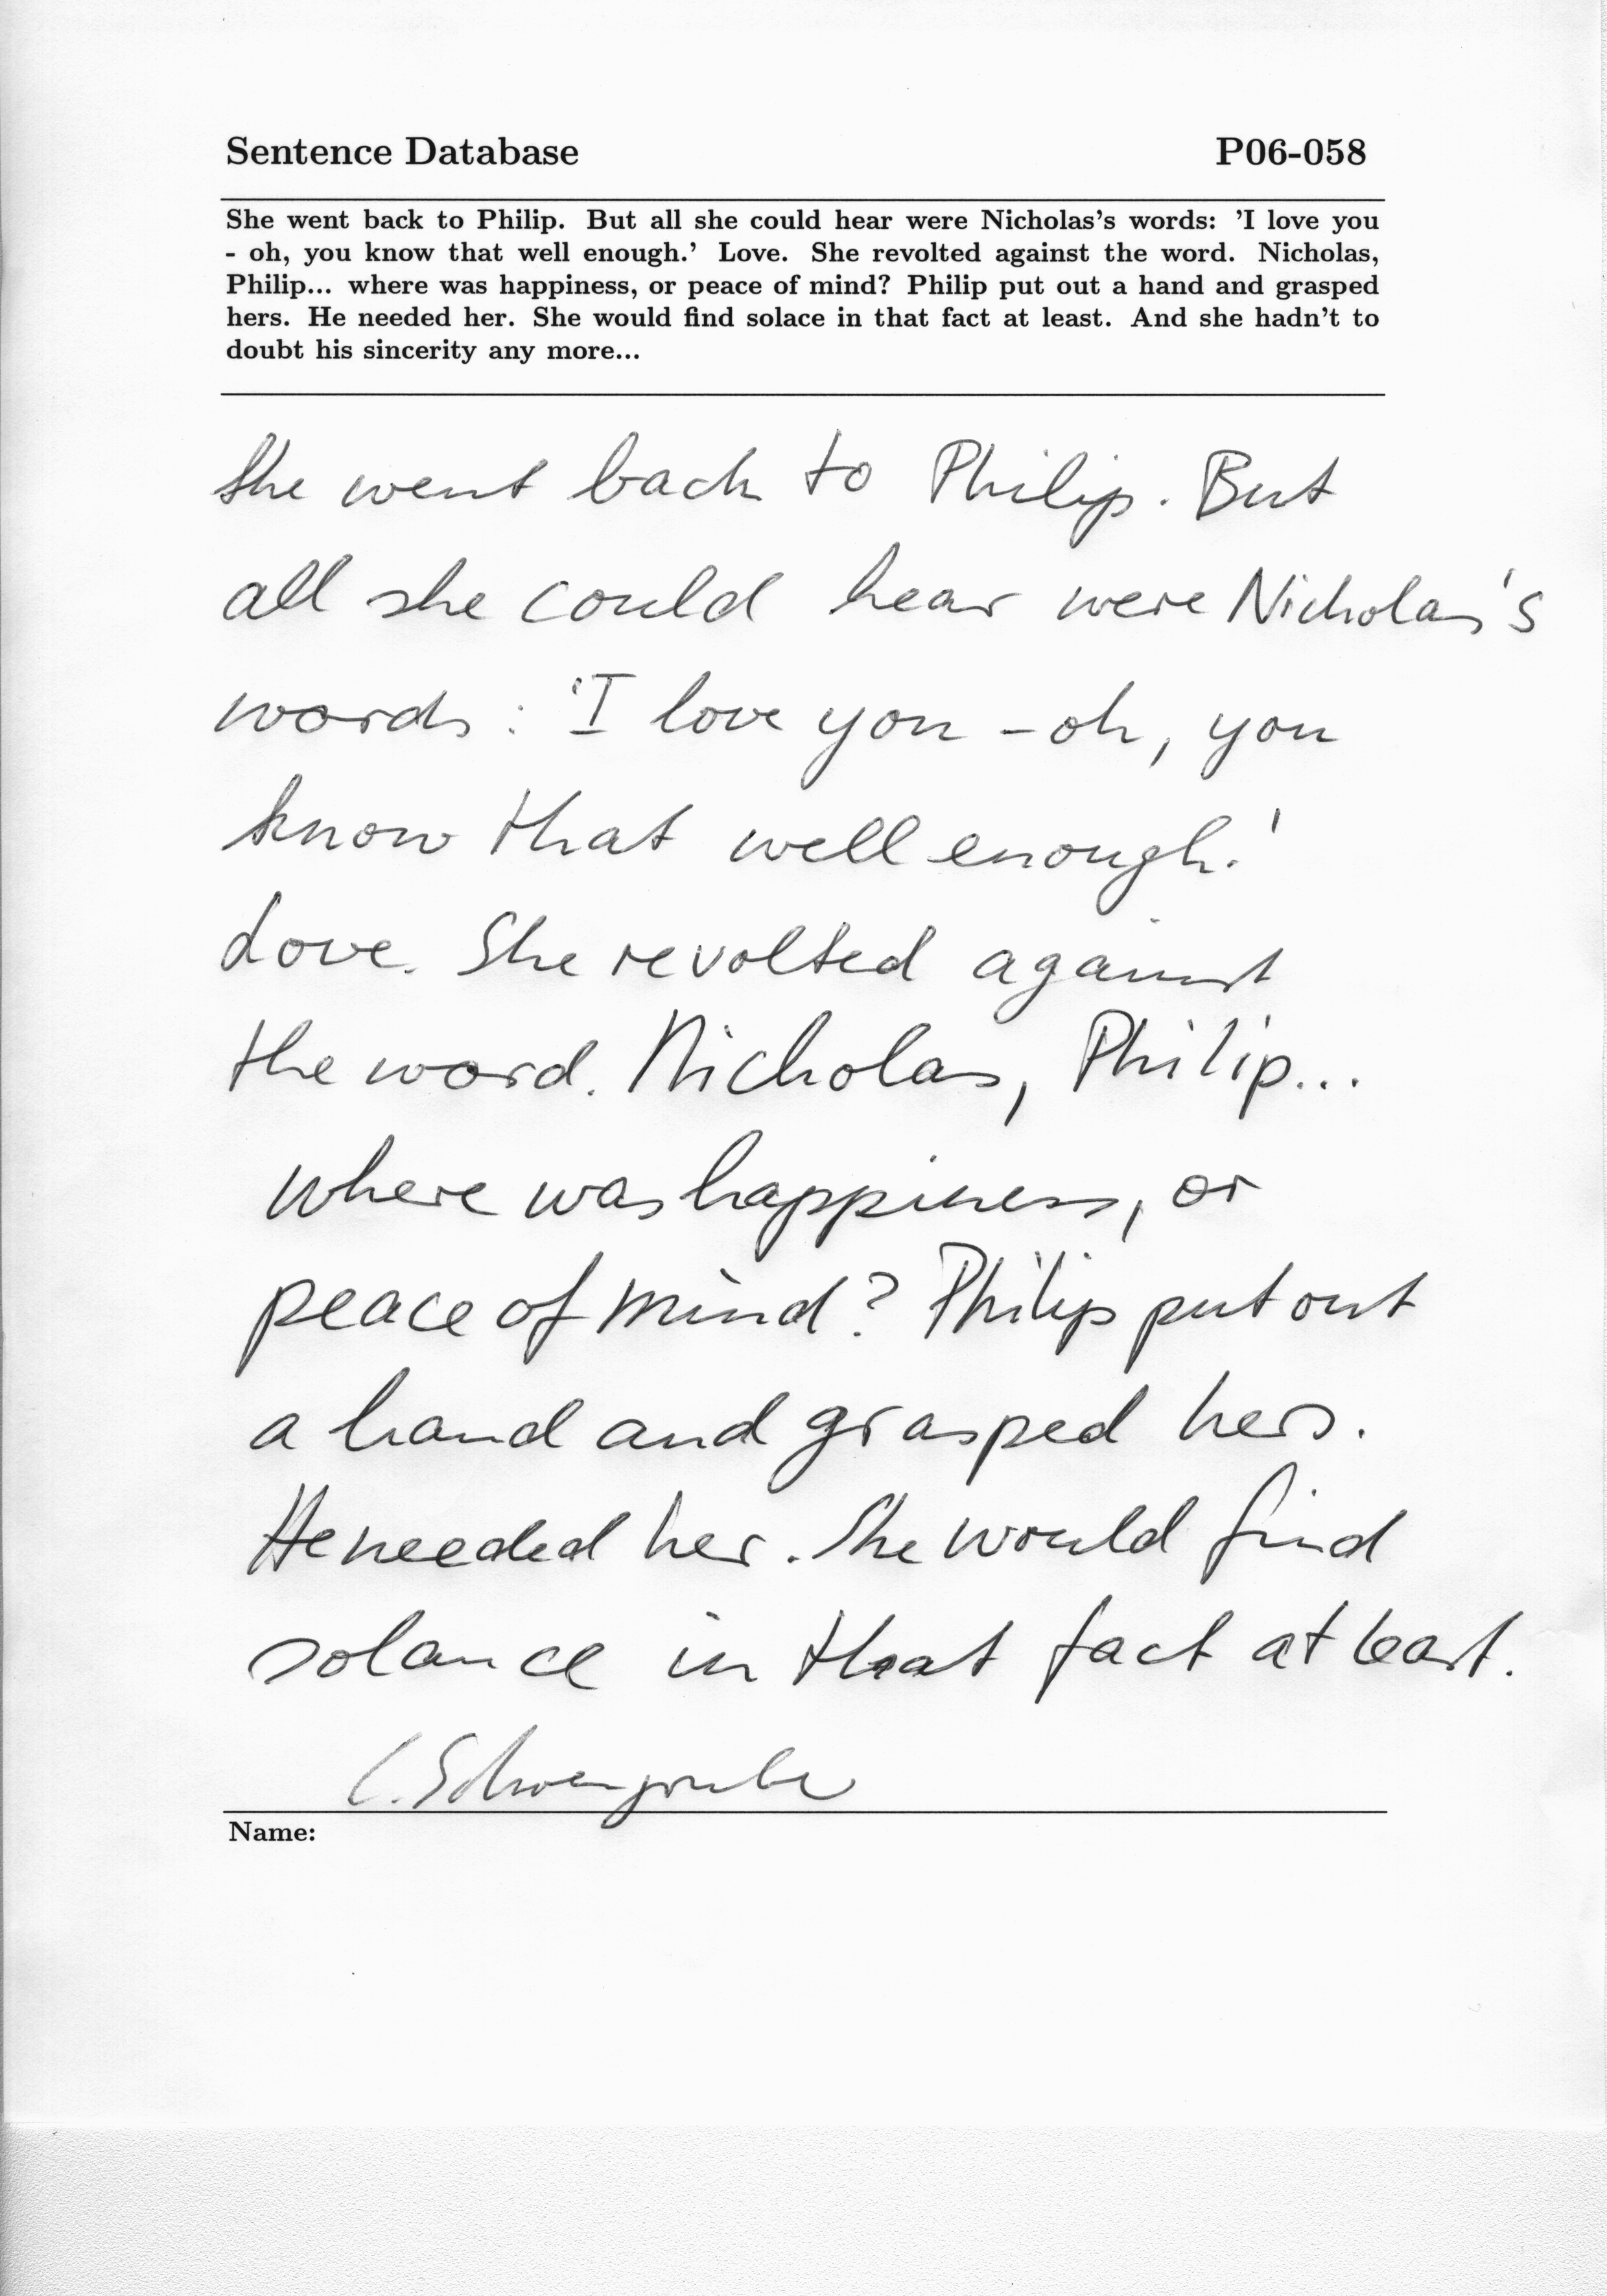 Sentence Database P06-058
She went back to Philip. But all she could hear were Nicholas's words: 'I love you
- oh, you know that well enough.' Love. She revolted against the word. Nicholas,
Philip... where was happiness, or peace of mind? Philip put out a hand and grasped
hers. He needed her. She would find solace in that fact at least. And she hadn't to
doubt his sincerity any more...
She went back to Philip. But
all she could hear were Nicholas's
words: 'I love you - oh, you
know that well enough.'
Love. She revolted against
the word. Nicholas, Philip...
where was happiness, or
peace of mind? Philip put out
a hand and grasped hers.
He needed her. She would find
solance in that fact at least.
Name: